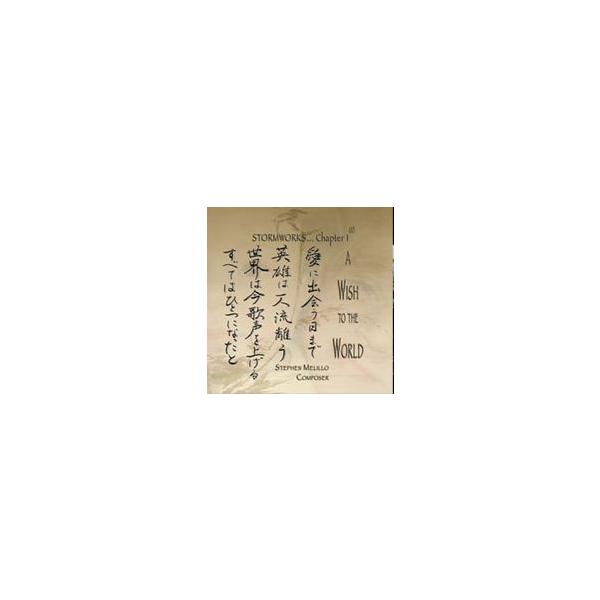 STORMWORKS... Chapter 1
A
WISH
TO THE
WORLD
愛に出会う日まで
英雄は一人流離う
世界は今歌声を上げる
すべてはひとつになったと
STEPHEN MELILLO
COMPOSER